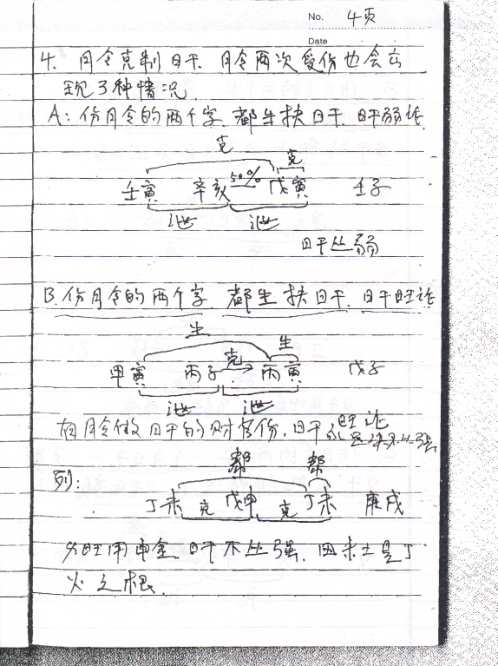 No. 4页
Date
4. 月令克制日干. 月令两次受伤也会出
现3种情况.
A: 伤月令的两个字 都生扶日干. 日干弱论
克
克
壬寅 辛亥 50% 戊寅 壬子
泄 泄
日干从弱
B. 伤月令的两个字 都生扶日干. 日干旺论
生
生
甲寅 丙子 克 丙寅 戊子
泄 泄
有月令做日干的财官伤. 日干 旺论
帮 帮
例:
丁未 克 戊申 克 丁未 庚戌
以旺用申金. 日干不从强. 因未土是丁
火之根.